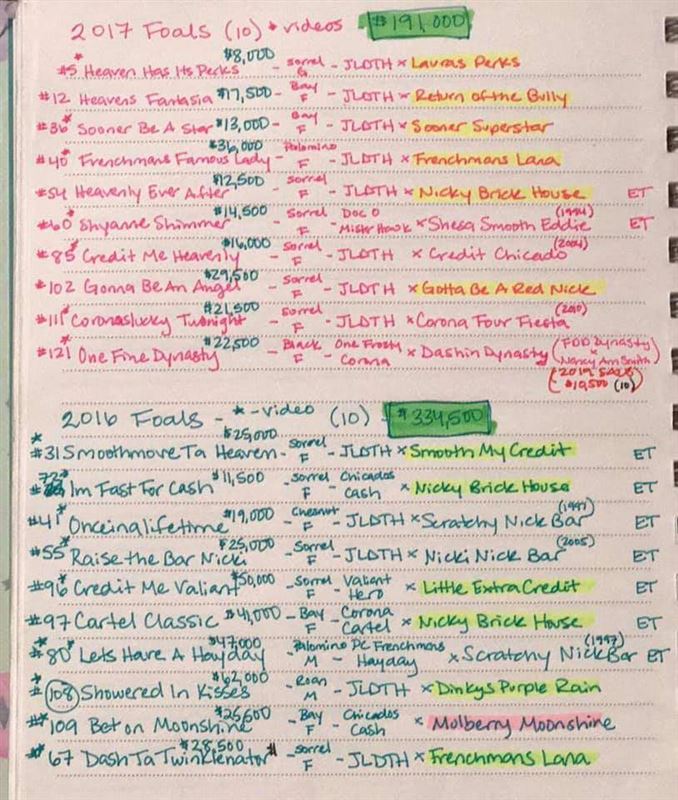 2017 Foals (10) * videos $191,000
* #5 Heaven Has Its Perks $8,000 - Sorrel G - JLDTH x Lauras Perks
#12 Heavens Fantasia $17,500 - Bay F - JLDTH x Return of the Bully
#36* Sooner Be A Star $13,000 - Bay F - JLDTH x Sooner Superstar
#40* Frenchmans Famous Lady $36,000 - Palomino F - JLDTH x Frenchmans Lana
#54 Heavenly Ever After $12,500 - Sorrel F - JLDTH x Nicky Brick House ET
#60* Shyanne Shimmer $14,500 - Sorrel F - Doc O Mister Hawk x Shesa Smooth Eddie (1994) ET
#85* Credit Me Heavenly $16,000 - Sorrel F - JLDTH x Credit Chicado (2004)
#102 Gonna Be An Angel $29,500 - Sorrel F - JLDTH x Gotta Be A Red Nick
#111* Coronaslucky Twonight $21,500 - Sorrel F - JLDTH x Corona Four Fiesta (2010)
#121* One Fine Dynasty $22,500 - Black F - One Frosty Corona x Dashin Dynasty (FDD Dynasty x Nancy Ann Smith)
(2019 SALE $19,500 (10)
2016 Foals - * - video (10) - $334,500
* #31 Smoothmove Ta Heaven $25,000 - Sorrel F - JLDTH x Smooth My Credit ET
#72* Im Fast For Cash $11,500 - Sorrel F - Chicados Cash x Nicky Brick House ET
#41* Onceinalifetime $19,000 - Chesnut F - JLDTH x Scratchy Nick Bar (1997) ET
#55* Raise the Bar Nicki $25,000 - Sorrel F - JLDTH x Nicki Nick Bar (2005) ET
#96* Credit Me Valiant $50,000 - Sorrel F - Valiant Hero x Little Extra Credit ET
#97 Cartel Classic $41,000 - Bay F - Corona Cartel x Nicky Brick House ET
* #80* Lets Have A Hayday $47,000 - Palomino M - PC Frenchmans Hayday x Scratchy Nick Bar (1997) ET
* #108 Showered In Kisses $62,000 - Roan M - JLDTH x Dinkys Purple Rain
#* 109 Bet on Moonshine $25,500 - Bay F - Chicados Cash x Mulberry Moonshine
#* 67 Dash Ta Twinklenator $28,500 - Sorrel F - JLDTH x Frenchmans Lana